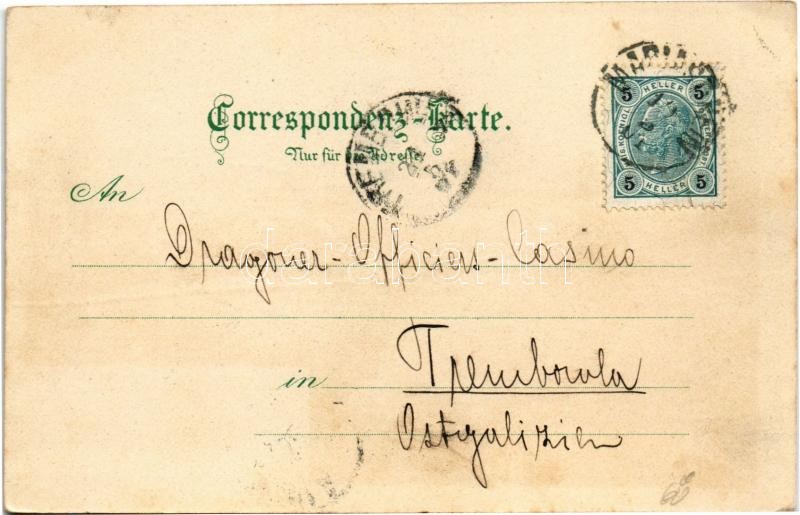 Correspondenz-Karte.
Nur für die Adresse
An
Dragoner-Officiers-Casino
in Trembowla
Ostgalizien
5 HELLER 5
5 HELLER 5
darabanth